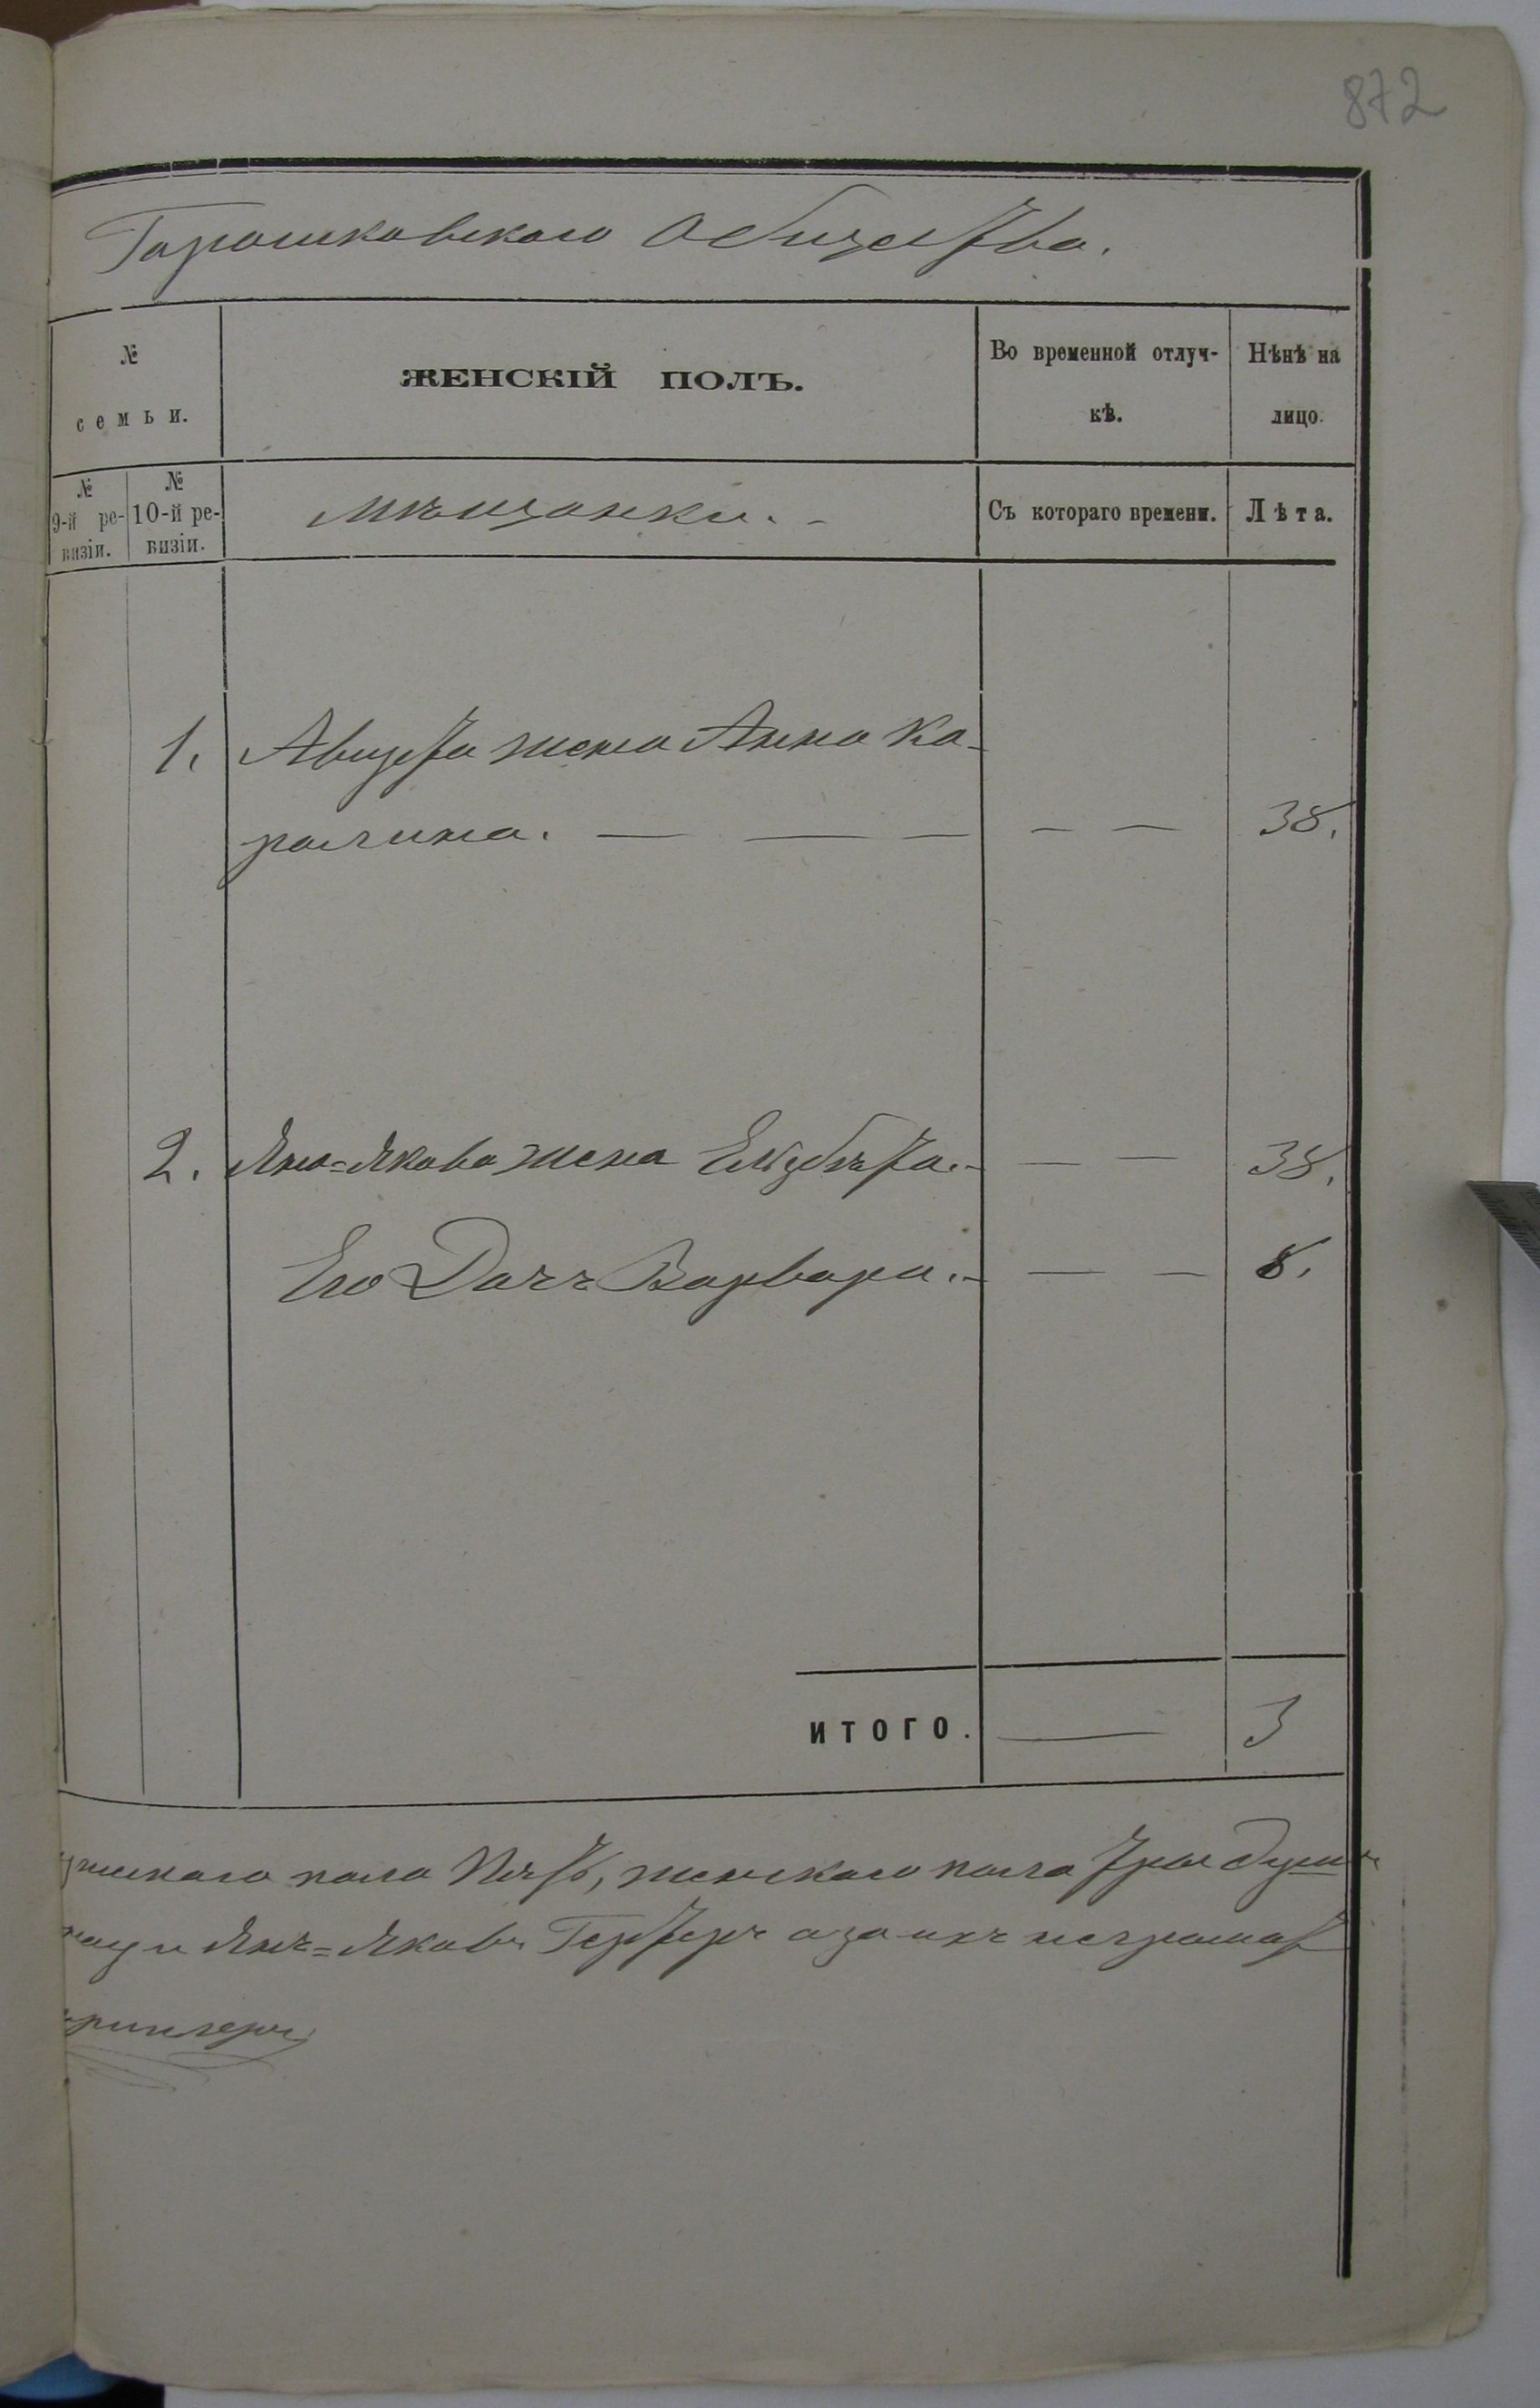 872
Горошковскаго Общества.
№
семьи.
ЖЕНСКІЙ ПОЛЪ.
Во временной отлуч-
кѣ.
Нѣнѣ на
лицо.
№
9-й ре-
визіи.
№
10-й ре-
визіи.
мѣщанки. -
Съ котораго времени.
Лѣта.
1. Августа жена Анна Ка-
ролина. — — — — — 38.
2. Яна=Якова жена Елизбѣта. - — — 38.
Его Дочь Варвара. - — — 8.
ИТОГО. — 3
пола пять, женскаго пола три души
и Янъ=Яковъ Гертеръ а за ихъ неграмот